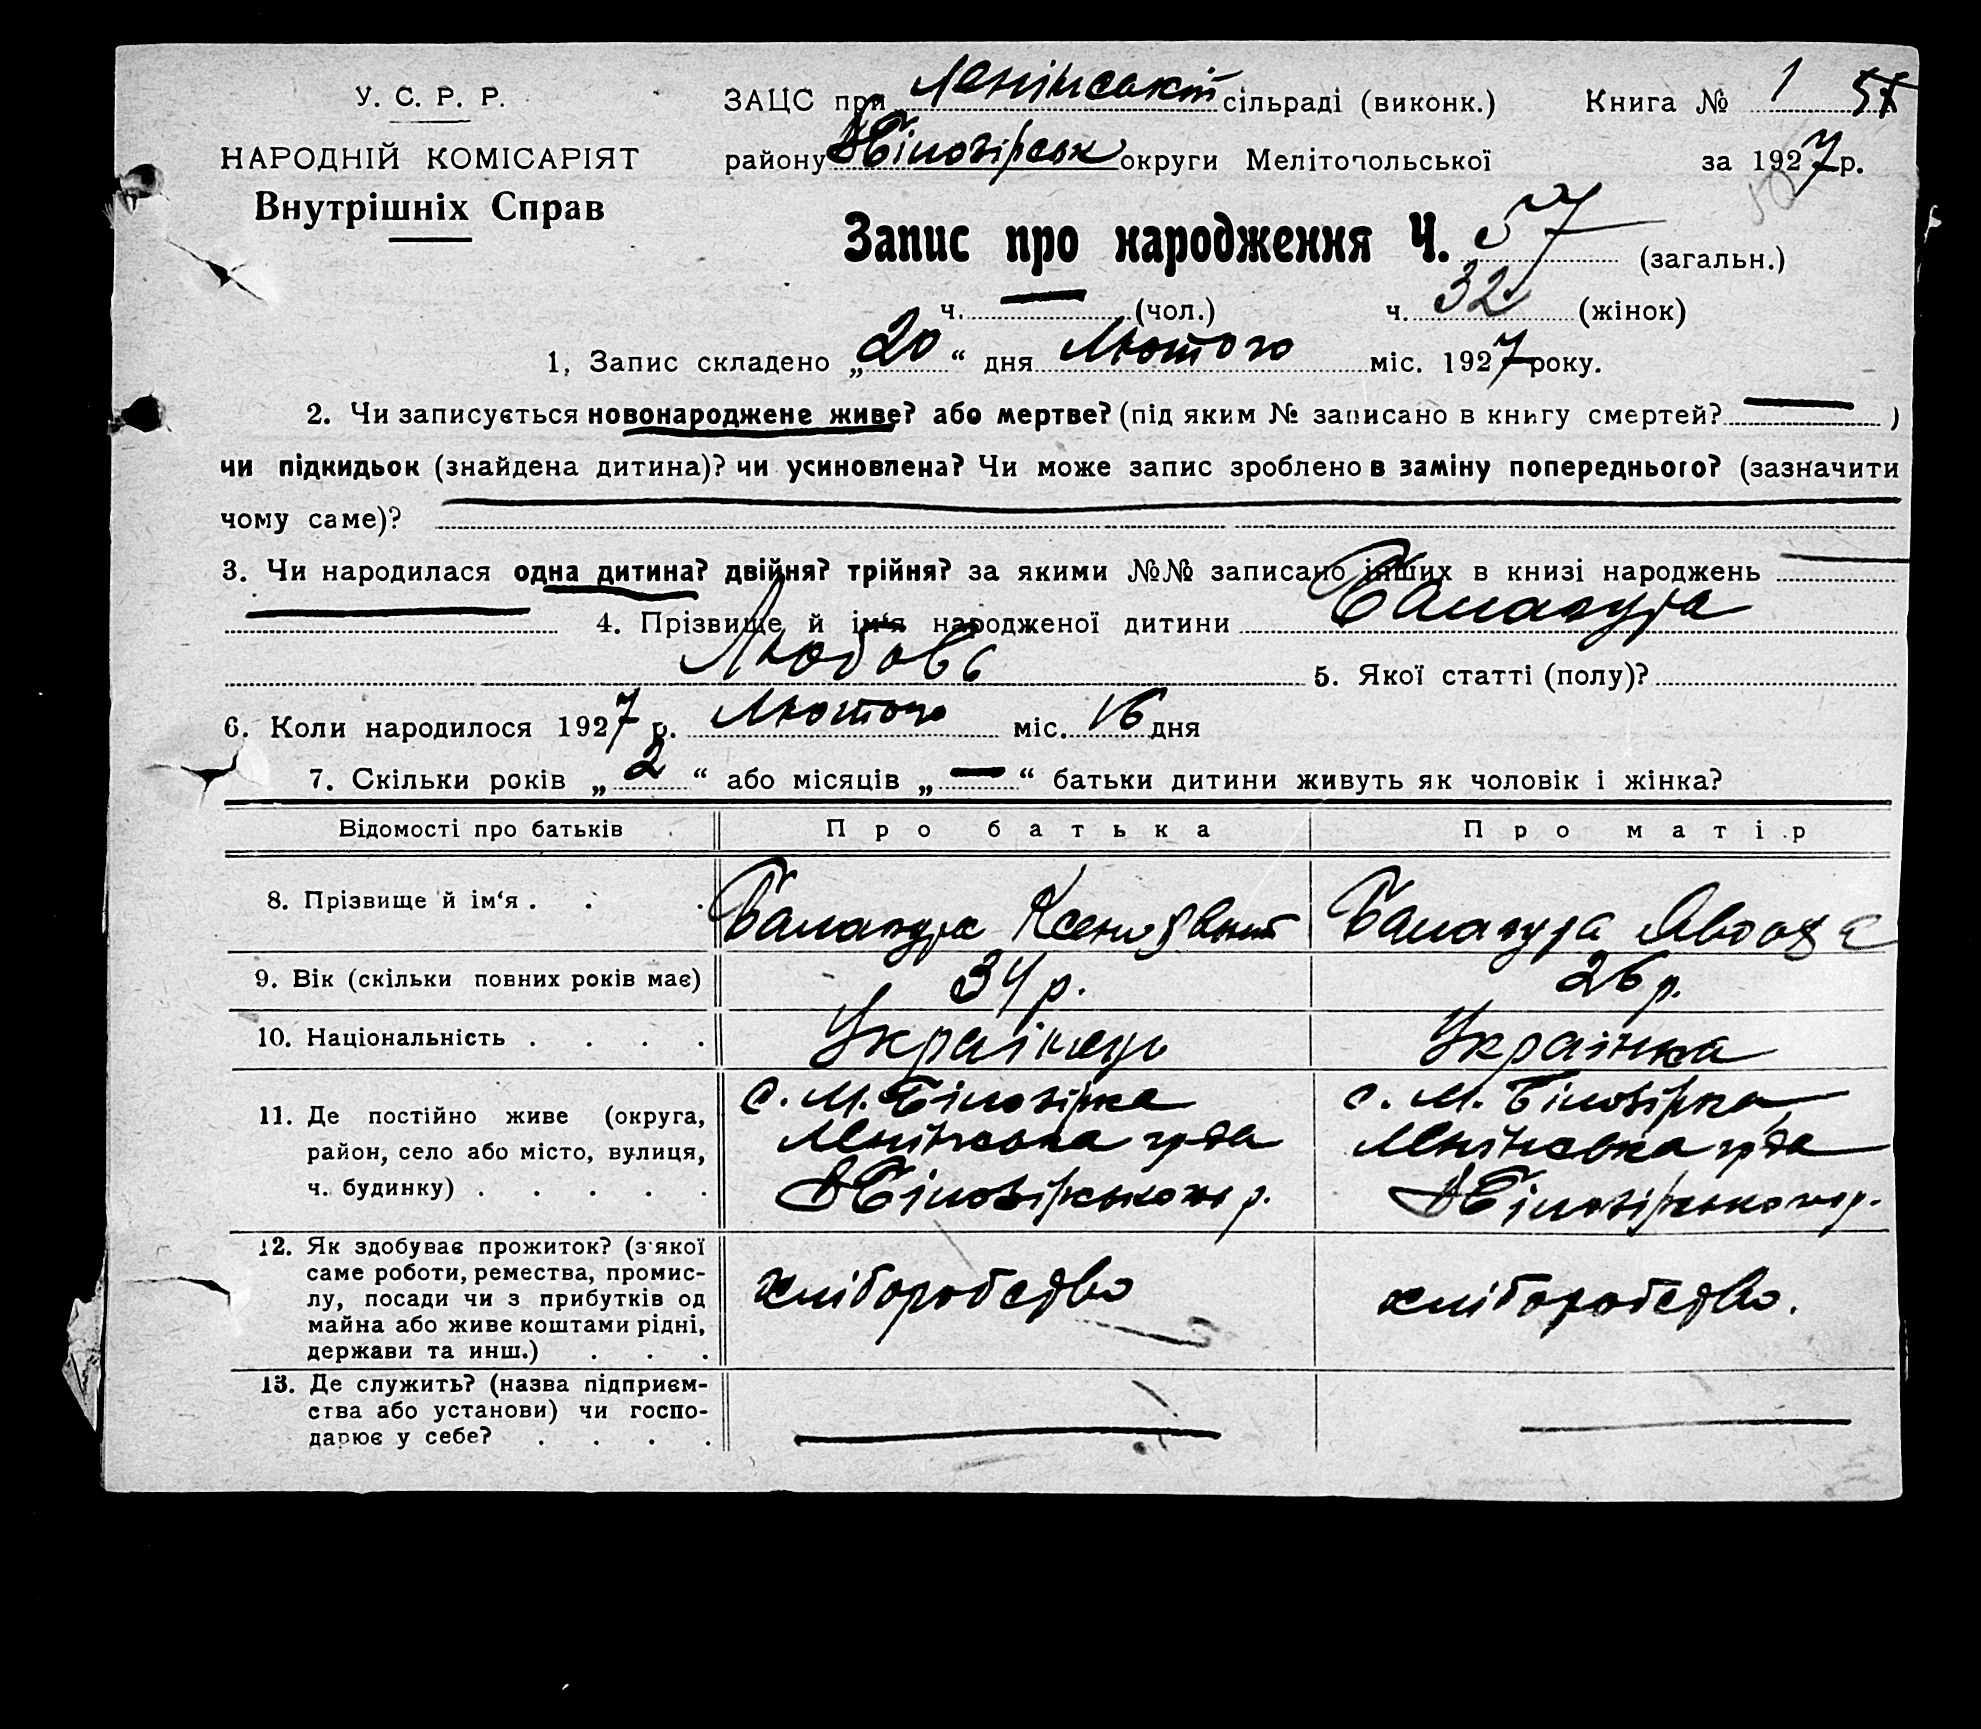 У. С. Р. Р.
НАРОДНІЙ КОМІСАРІЯТ
Внутрішніх Справ
ЗАЦС при Ленінській сільраді (виконк.) Книга № 1 57
району В Білозірськ округи Мелітопольської за 1927 р.
Запис про народження Ч. 57 (загальн.)
ч. — (чол.) ч. 32 (жінок)
1, Запис складено „20“ дня Лютого міс. 1927 року.
2. Чи записується новонароджене живе? або мертве? (під яким № записано в книгу смертей? — )
чи підкидьок (знайдена дитина)? чи усиновлена? Чи може запис зроблено в заміну попереднього? (зазначити
чому саме)?
3. Чи народилася одна дитина? двійня? трійня? за якими №№ записано інших в книзі народжень —
4. Прізвище й ім‘я народженої дитини Балагура
Любовь 5. Якої статті (полу)?
6. Коли народилося 1927 р. Лютого міс. 16 дня
7. Скільки років „2“ або місяців „—“ батьки дитини живуть як чоловік і жінка?
Відомості про батьків Про батька Про матір
8. Прізвище й ім‘я . . . Балагура Балагура
9. Вік (скільки повних років має) 34 р. 26 р.
10. Національність . . . . Українець Українка
11. Де постійно живе (округа, с. М. Білозірка с. М. Білозірка
район, село або місто, вулиця, Ленінська Ленінська
ч. будинку) . . . . . В Білозірського р. В Білозірського р.
12. Як здобуває прожиток? (з'якої
саме роботи, ремества, промис-
лу, посади чи з прибутків од хліборобство хліборобство.
майна або живе коштами рідні,
держави та инш.) . . .
13. Де служить? (назва підприєм-
ства або установи) чи госпо-
дарює у себе? . . . . — —